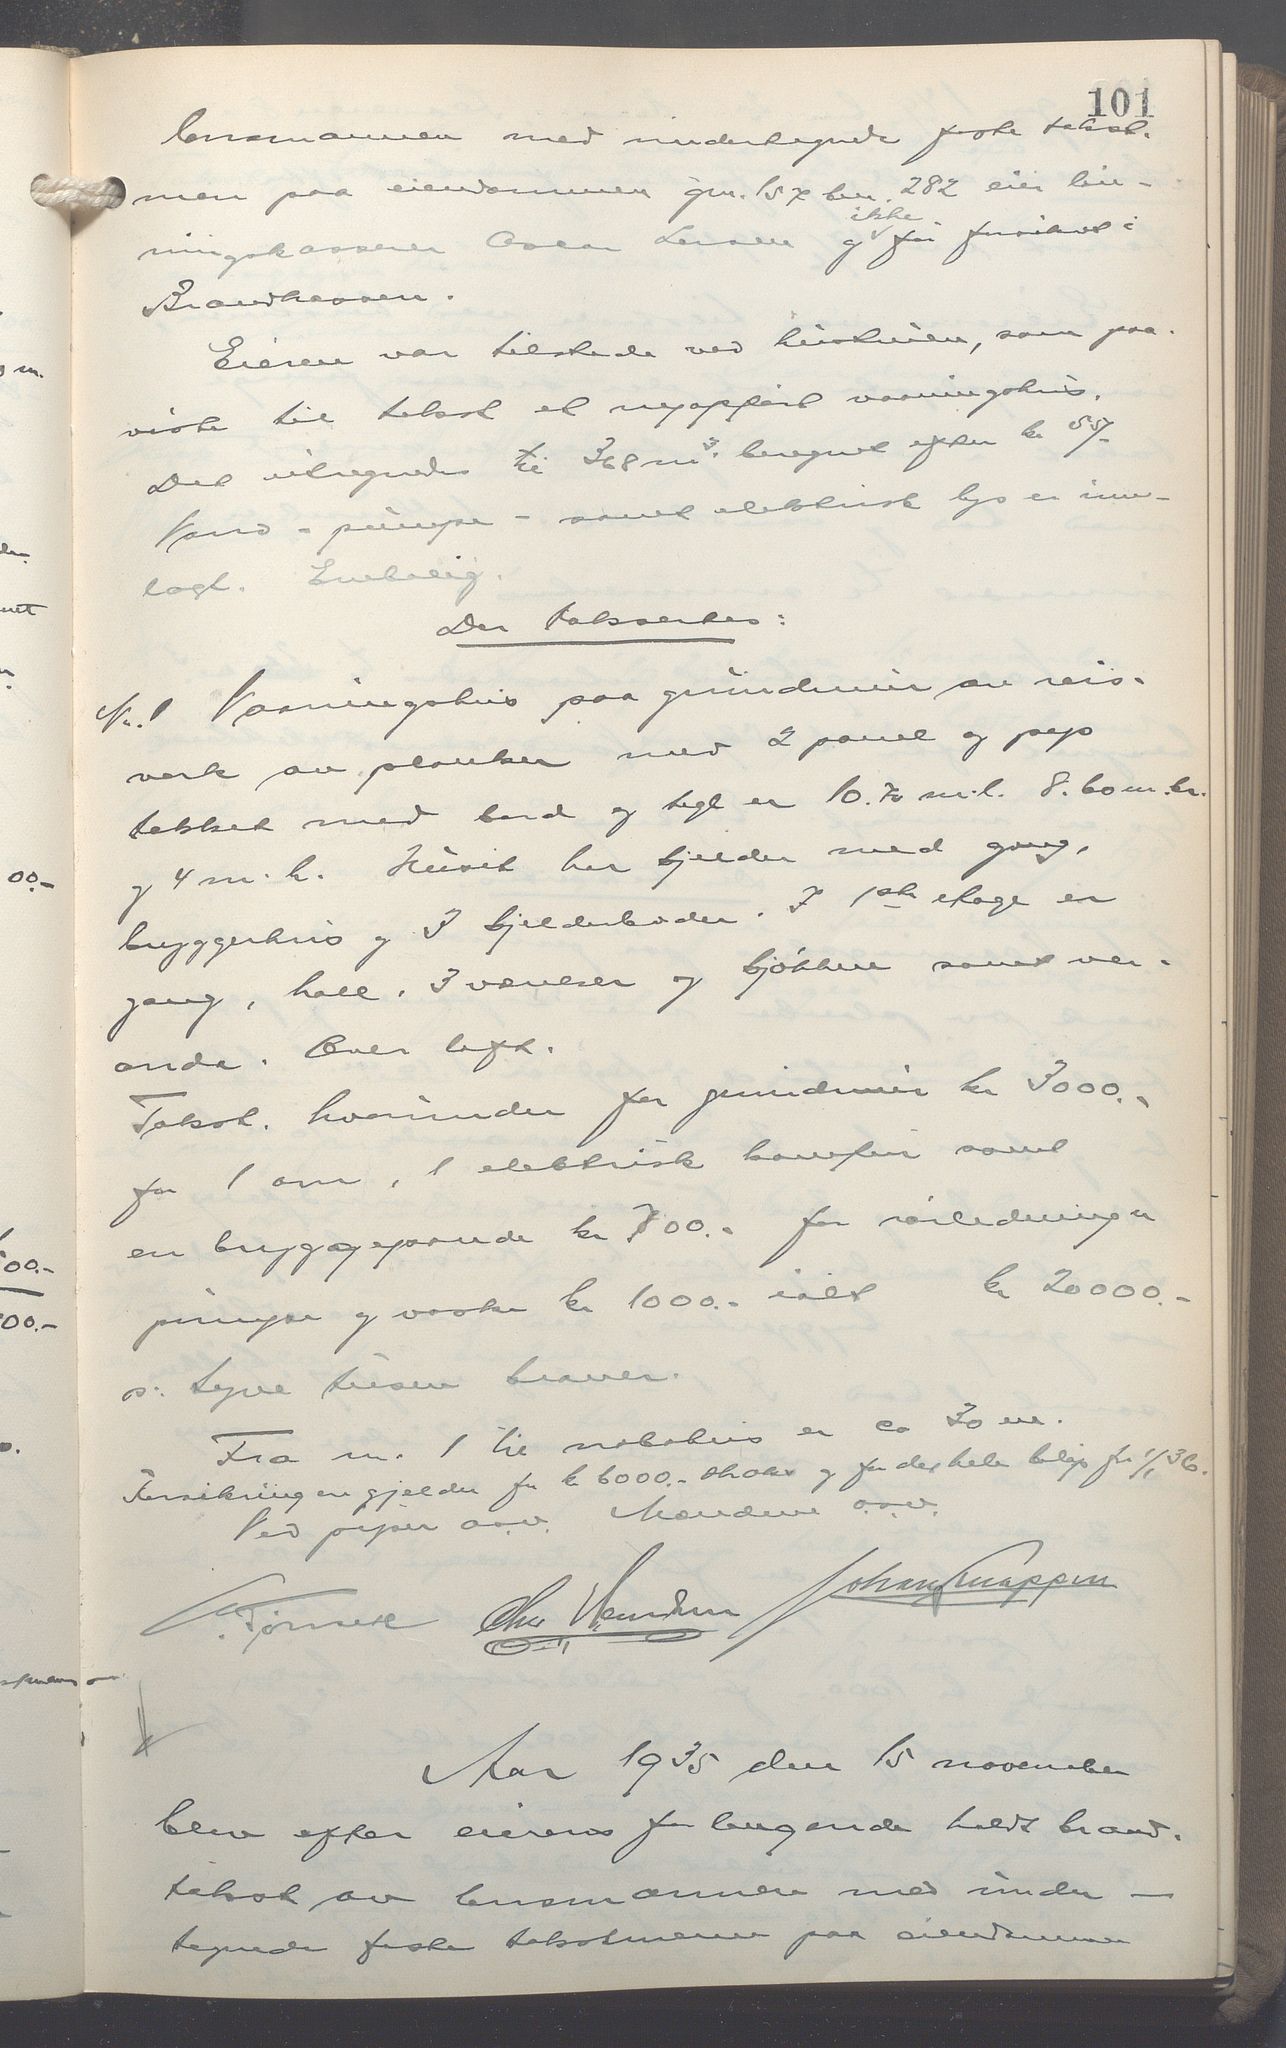 101
lensmannen med undertegnede faste takst-
men paa eiendommen gnr. 157 bnr. 282 eier lin-
ningskasserer Oscar Larsen og ikke før forsikret i
Brandkassen.
Eieren var tilstede ved hustruen, som paa-
viste til takst et nyopført vaaningshus.
Det utregnedes til 368 m³. beregnet efter kr 55/-
Vand - pumpe - samt elektrisk lys er inn-
lagt. Enebolig.
Der taksertes:
Nr. 1 Vaaningshus paa grundmur av reis-
verk av planker med 2 panel og papp
tekket med bord og tegl er 10.70 m.l. 8.60 m.br.
og 4 m.h. Huset har kjelder med gang,
bryggerhus og 3 kjelderboder. I 1ste etage er
gang, hall, 3 værelser og kjøkken samt ver-
anda. Over loft.
Takst. hvorunder for grundmur kr 3000.-
for 1 ovn, 1 elektrisk komfur samt
en bryggepande kr 700.- for rørledninger
pumpe og vaske kr 1000.- ialt kr 20000.-
ɔ: tyve tusen kroner.
Fra nr. 1 til nabohus er ca 30 m.
Forsikringen gjelder for kr 6000.- straks og for det hele beløp fra 1/1 36.
Ved piper o.s.v. Mændene o.s.v.
Tjørnsek Chr Hendun Johan Knappen
Aar 1935 den 15 november
blev efter eierens forlangende holdt brand-
takst av lensmannen med under-
tegnede faste takstmenn paa eiendommen